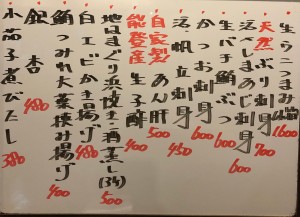 生ウニつまみ 1600
天然ぶり刺身 700
活〆あじ刺身 600
生バチ鮪ぶつ 600
かつお刺身 600
活帆立刺身 450
自家製あん肝 500
能登産生子酢 400
地はまぐり浜焼き・酒蒸し(3ヶ) 500
白エビかき揚げ 480
鮪つみれ大葉挟み揚げ 400
銀杏 480
小茄子煮びたし 380